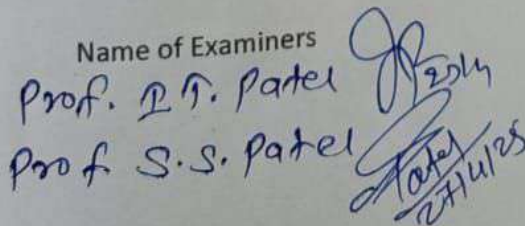 Name of Examiners
Prof. I. T. Patel
Prof S.S. Patel
Patel
27/4/25